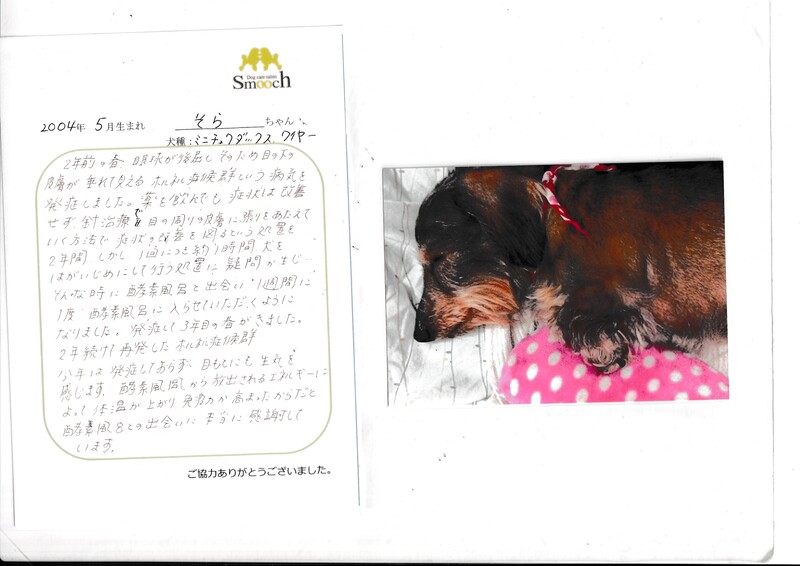 Dog care salon
Smooch
2004年 5月生まれ そら ちゃん
犬種：ミニチュワダックス ワイヤー
2年前の春 眼球が陥屈し そのため目の下の
皮膚が垂れて見える ホルネル症候群という病気を
発症しました。薬を飲んでも 症状は改善
せず、針治療で目の周りの皮膚に張りをあたえて
いく方法で 症状の改善を図るという処置を
2年間 しかし 1回につき約1時間 犬を
はがいじめにして行う処置に 疑問が生じ‥
そんな時に 酵素風呂と出会い 1週間に
1度 酵素風呂に入らせていただくように
なりました。発症して3年目の春がきました。
2年続けて再発した ホルネル症候群
今年は発症しておらず、目もとにも生気を
感じます。酵素風呂から放出されるエネルギーに
よって 体温が上がり 免疫力が高まったからだと
酵素風呂との出会いに 本当に感謝して
います。
ご協力ありがとうございました。